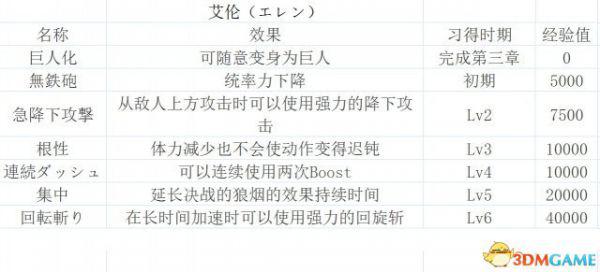 艾伦（エレン）
名称 效果 习得时期 经验值
巨人化 可随意变身为巨人 完成第三章 0
無鉄砲 统率力下降 初期 5000
急降下攻撃 从敌人上方攻击时可以使用强力的降下攻击 Lv2 7500
根性 体力减少也不会使动作变得迟钝 Lv3 10000
連続ダッシュ 可以连续使用两次Boost Lv4 10000
集中 延长决战的狼烟的效果持续时间 Lv5 20000
回転斬り 在长时间加速时可以使用强力的回旋斩 Lv6 40000
3DMGAME